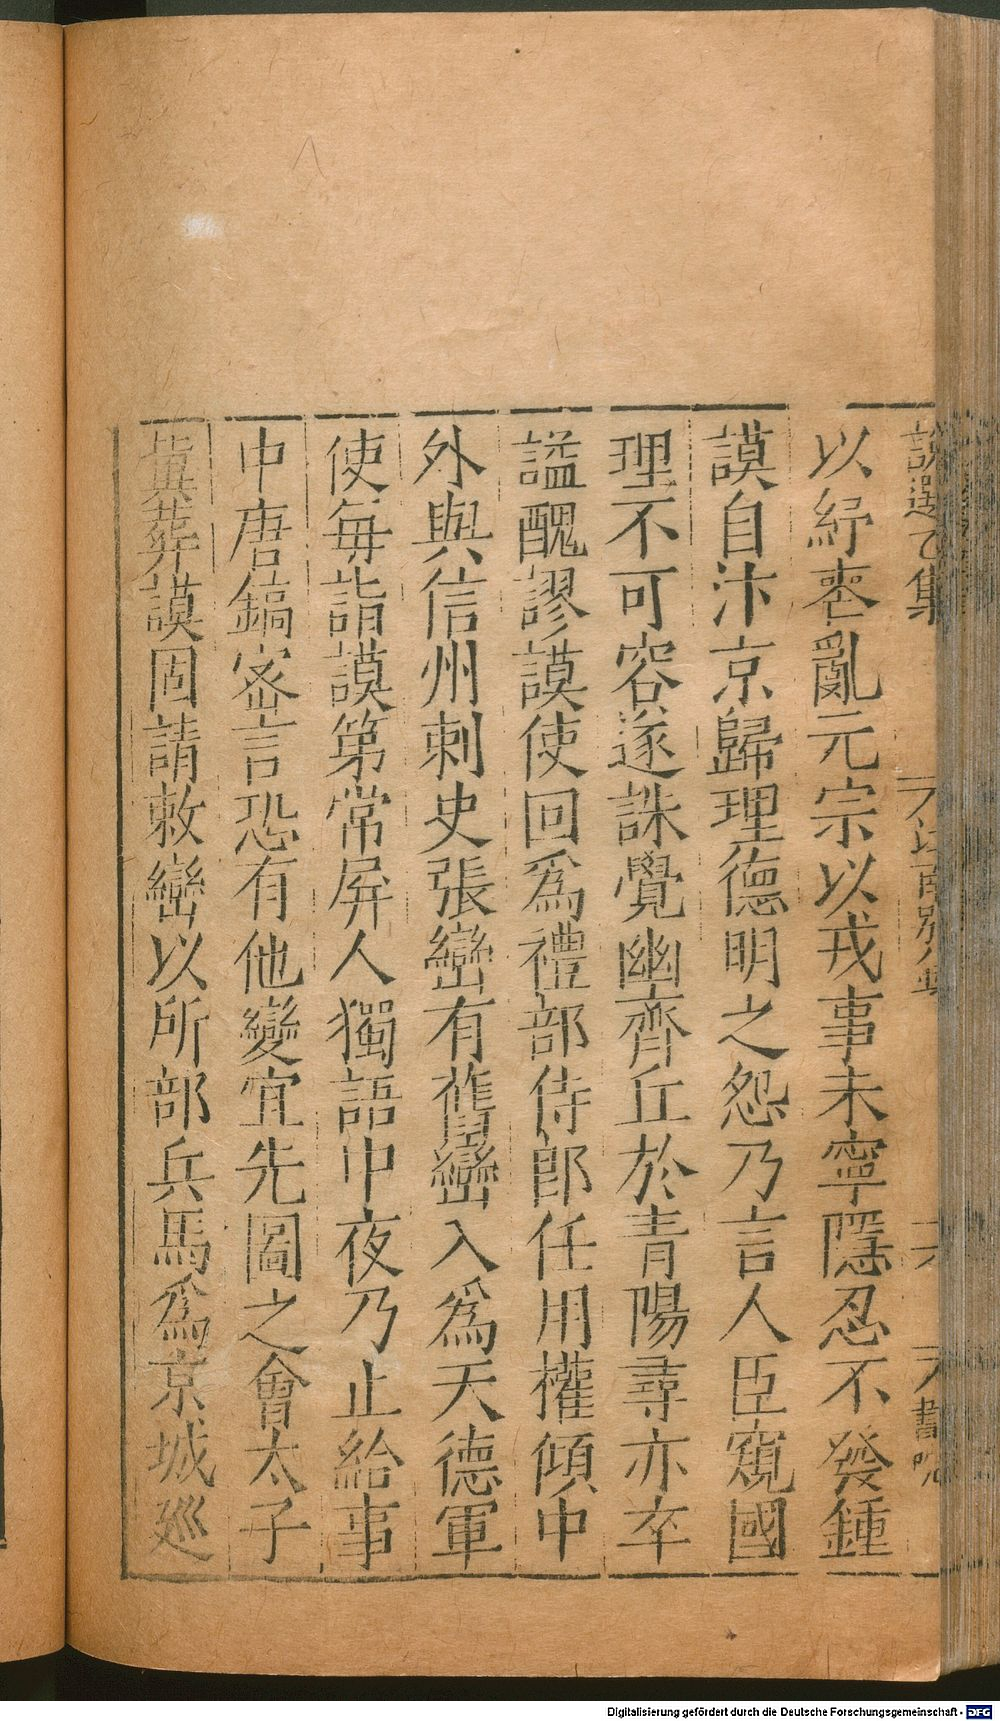 說選乙集
江南別錄
十六
書院
以紓喪亂元宗以戎事未寧隱忍不發鍾
謨自汴京歸理德明之怨乃言人臣窺國
理不可容遂誅覺幽齊丘於青陽尋亦卒
謚醜謬謨使回爲禮部侍郎任用權傾中
外與信州刺史張巒有舊巒入爲天德軍
使每詣謨第常屏人獨語中夜乃止給事
中唐鎬密言恐有他變宜先圖之會太子
葬謨固請敕巒以所部兵馬爲京城廵
Digitalisierung gefördert durch die Deutsche Forschungsgemeinschaft - DFG